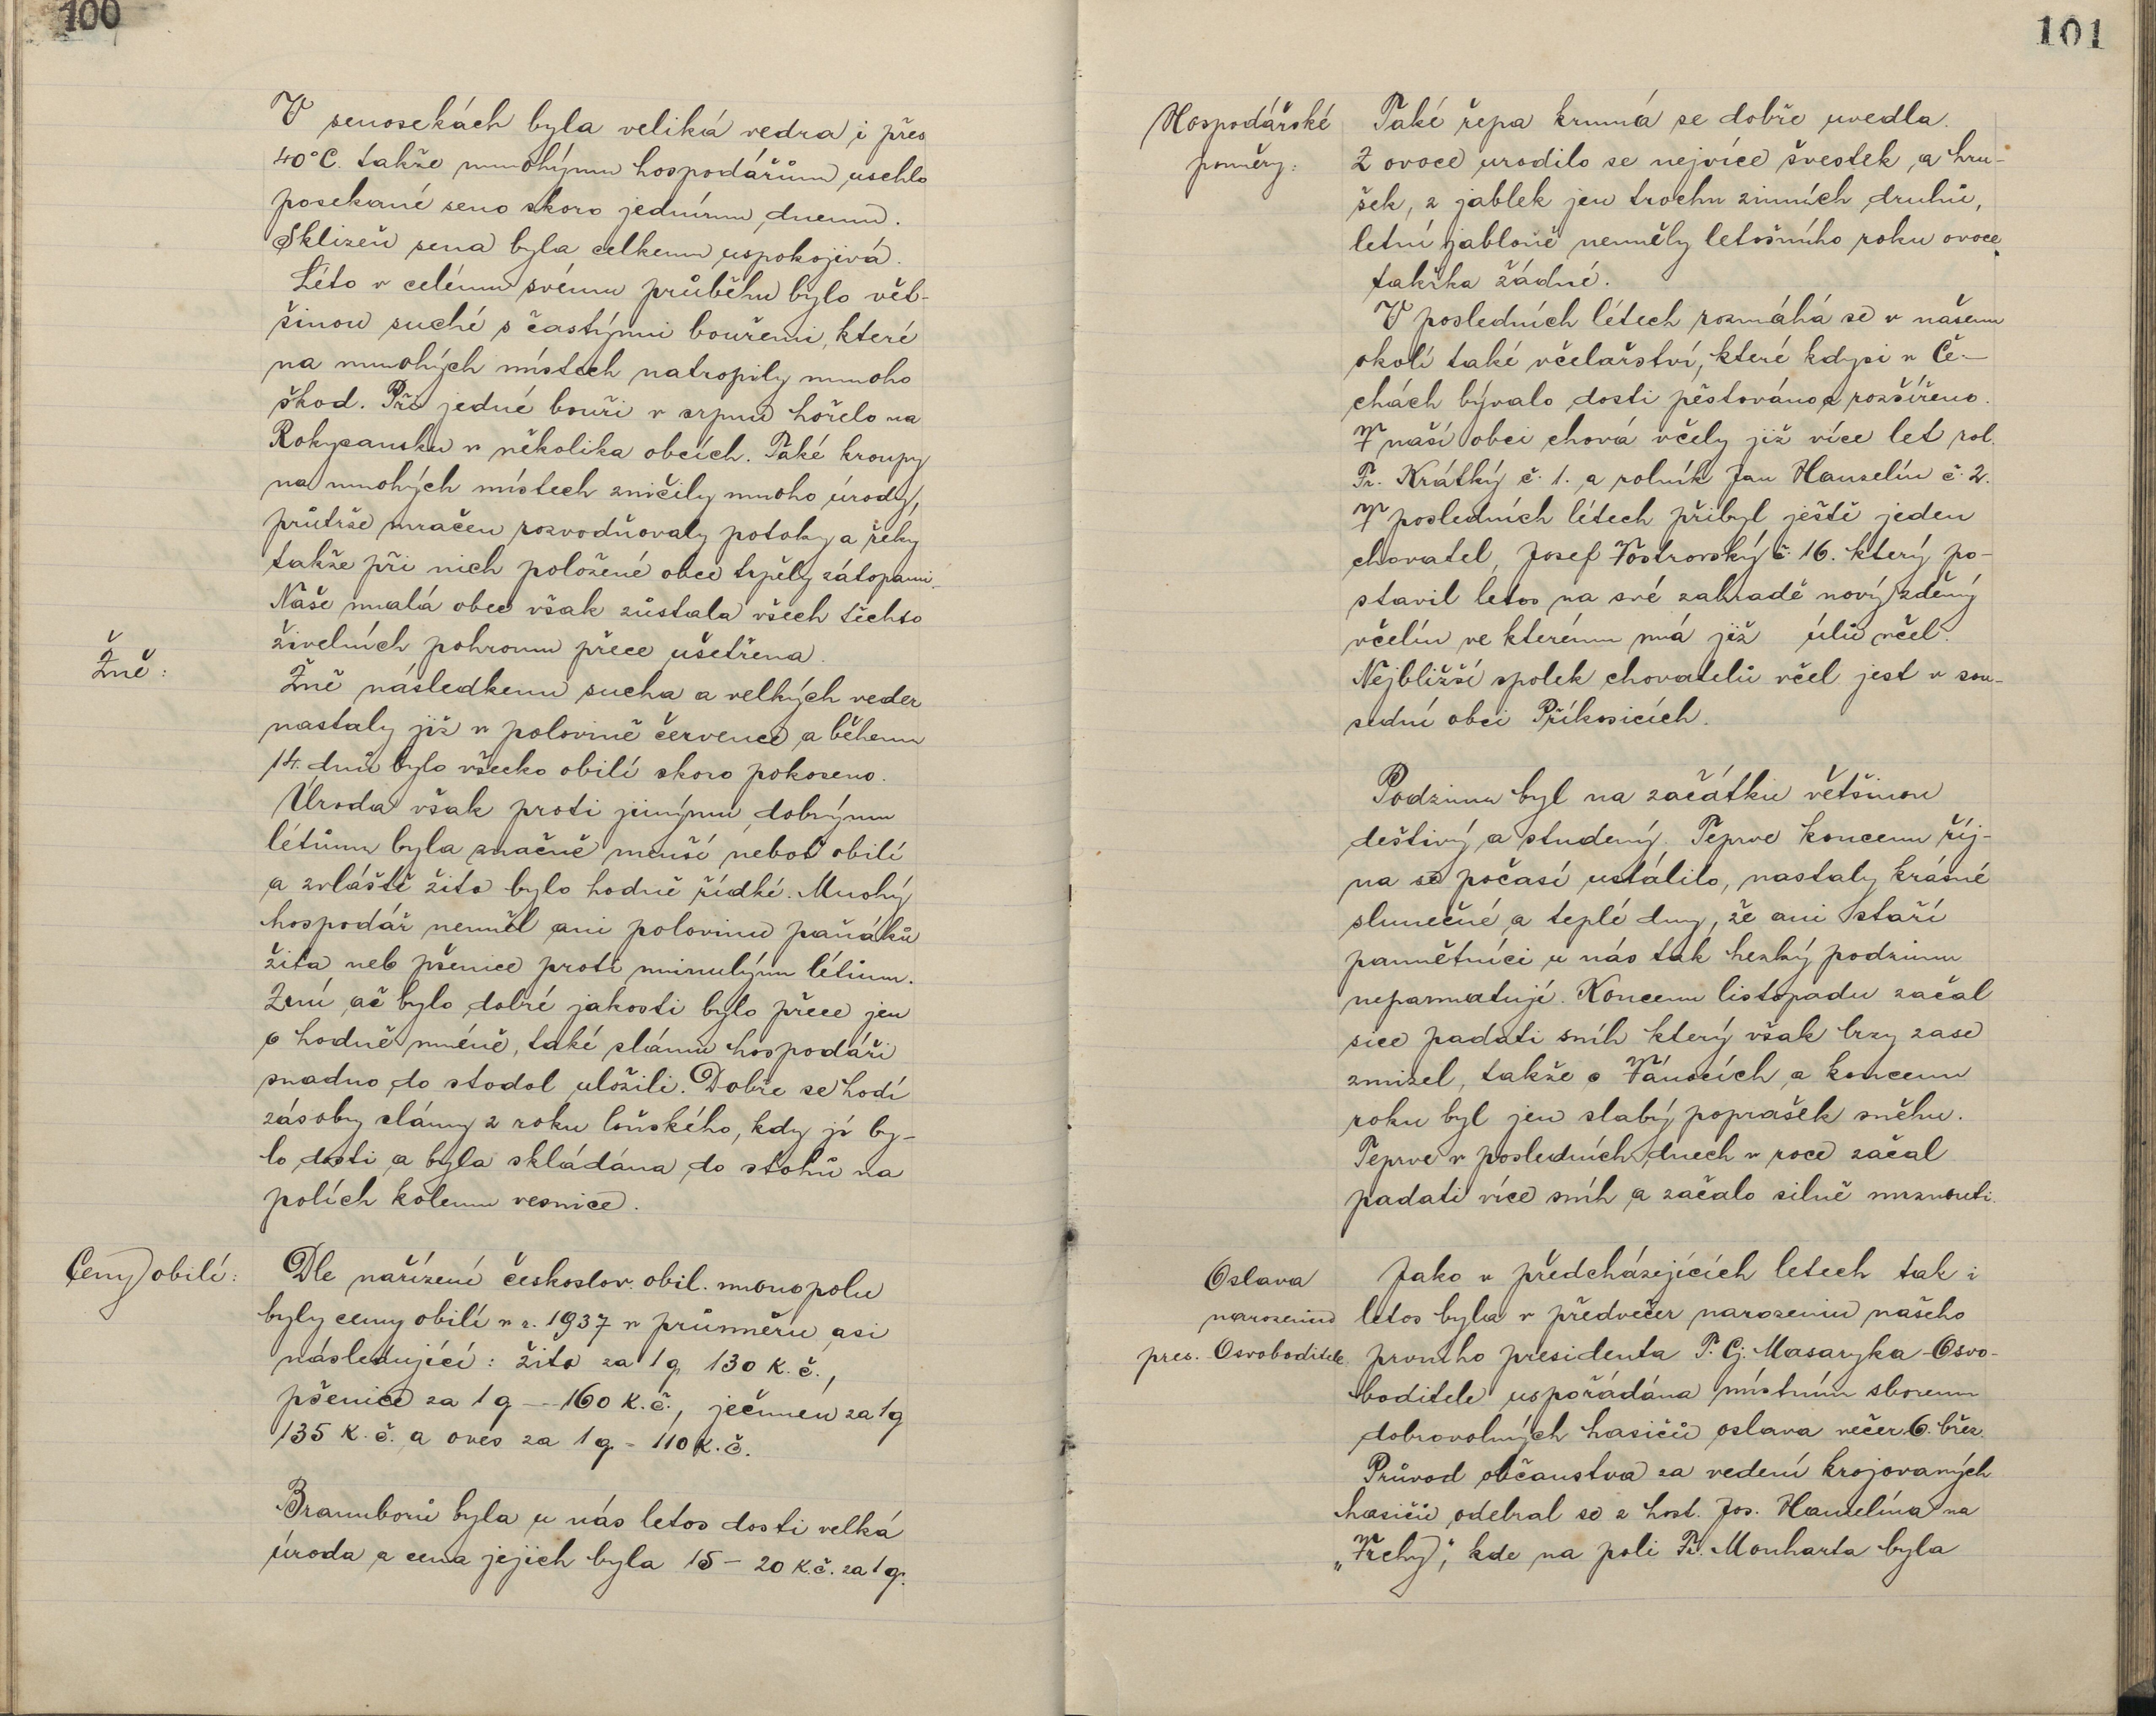 100
V senosekách byla veliká vedra i přes
40°C. takže mnohým hospodářům uschlo
posekané seno skoro jedním dnem.
Sklizeň sena byla celkem uspokojivá.
Léto v celém svém průběhu bylo vět-
šinou suché s častými bouřemi, které
na mnohých místech natropily mnoho
škod. Při jedné bouři v srpnu hořelo na
Rokycansku v několika obcích. Také kroupy
na mnohých místech zničily mnoho úrody,
průtrže mračen rozvodňovaly potoky a řeky
takže při nich položené obce trpěly zátopami.
Naše malá obec však zůstala všech těchto
živelních pohrom přece ušetřena.
Žně:
Žně následkem sucha a velkých veder
nastaly již v polovině července a během
14. dnů bylo všecko obilí skoro pokoseno.
Úroda však proti jiným dobrým
létům byla značně menší neboť obilí
a zvláště žito bylo hodně řídké. Mnohý
hospodář neměl ani polovinu panáků
žita neb pšenice proti minulým létům.
Zrní, ač bylo dobré jakosti bylo přece jen
o hodně méně, také slámu hospodáři
snadno do stodol uložili. Dobře se hodí
zásoby slámy z roku loňského, kdy jí by-
lo dosti a byla skládána do stohů na
polích kolem vesnice.
Ceny obilí:
Dle nařízení českoslov. obil. monopolu
byly ceny obilí v r. 1937 v průměru asi
následující: žito za 1 q 130 K.č.,
pšenice za 1 q -- 160 K.č., ječmen za 1q
135 K.č. a oves za 1 q. - 110 K.č.
Bramborů byla u nás letos dosti velká
úroda a cena jejich byla 15 - 20 K.č. za 1 q.
101
Hospodářské
poměry:
Také řepa krmná se dobře uvedla.
Z ovoce urodilo se nejvíce švestek a hru-
šek, z jablek jen trochu zimních druhů,
letní jabloně neměly letošního roku ovoce
takřka žádné.
V posledních létech rozmáhá se v našem
okolí také včelařství, které kdysi v Če-
chách bývalo dosti pěstováno a rozšířeno.
V naší obci chová včely již více let rol.
Fr. Krátký č. 1. a rolník Jan Hanzelín č. 2.
V posledních létech přibyl ještě jeden
chovatel, Josef Vostrovský č. 16. který po-
stavil letos na své zahradě nový zděný
včelín ve kterém má již úlů včel.
Nejbližší spolek chovatelů včel jest v sou-
sední obci Příkosicích.
Podzim byl na začátku většinou
deštivý a studený. Teprve koncem říj-
na se počasí ustálilo, nastaly krásné
slunečné a teplé dny, že ani staří
pamětníci u nás tak hezký podzim
nepamatují. Koncem listopadu začal
sice padati sníh který však brzy zase
zmizel, takže o Vánocích a koncem
roku byl jen slabý poprašek sněhu.
Teprve v posledních dnech v roce začal
padati více sníh a začalo silně mrznouti.
Oslava
narozenin
pres. Osvoboditele.
Jako v předcházejících letech tak i
letos byla v předvečer narozenin našeho
prvního presidenta T. G. Masaryka-Osvo-
boditele uspořádána místním sborem
dobrovolných hasičů oslava večer 6. břez.
Průvod občanstva za vedení krojovaných
hasičů odebral se z host. Jos. Hanzelína na
„Vrchy", kde na poli Fr. Monharta byla